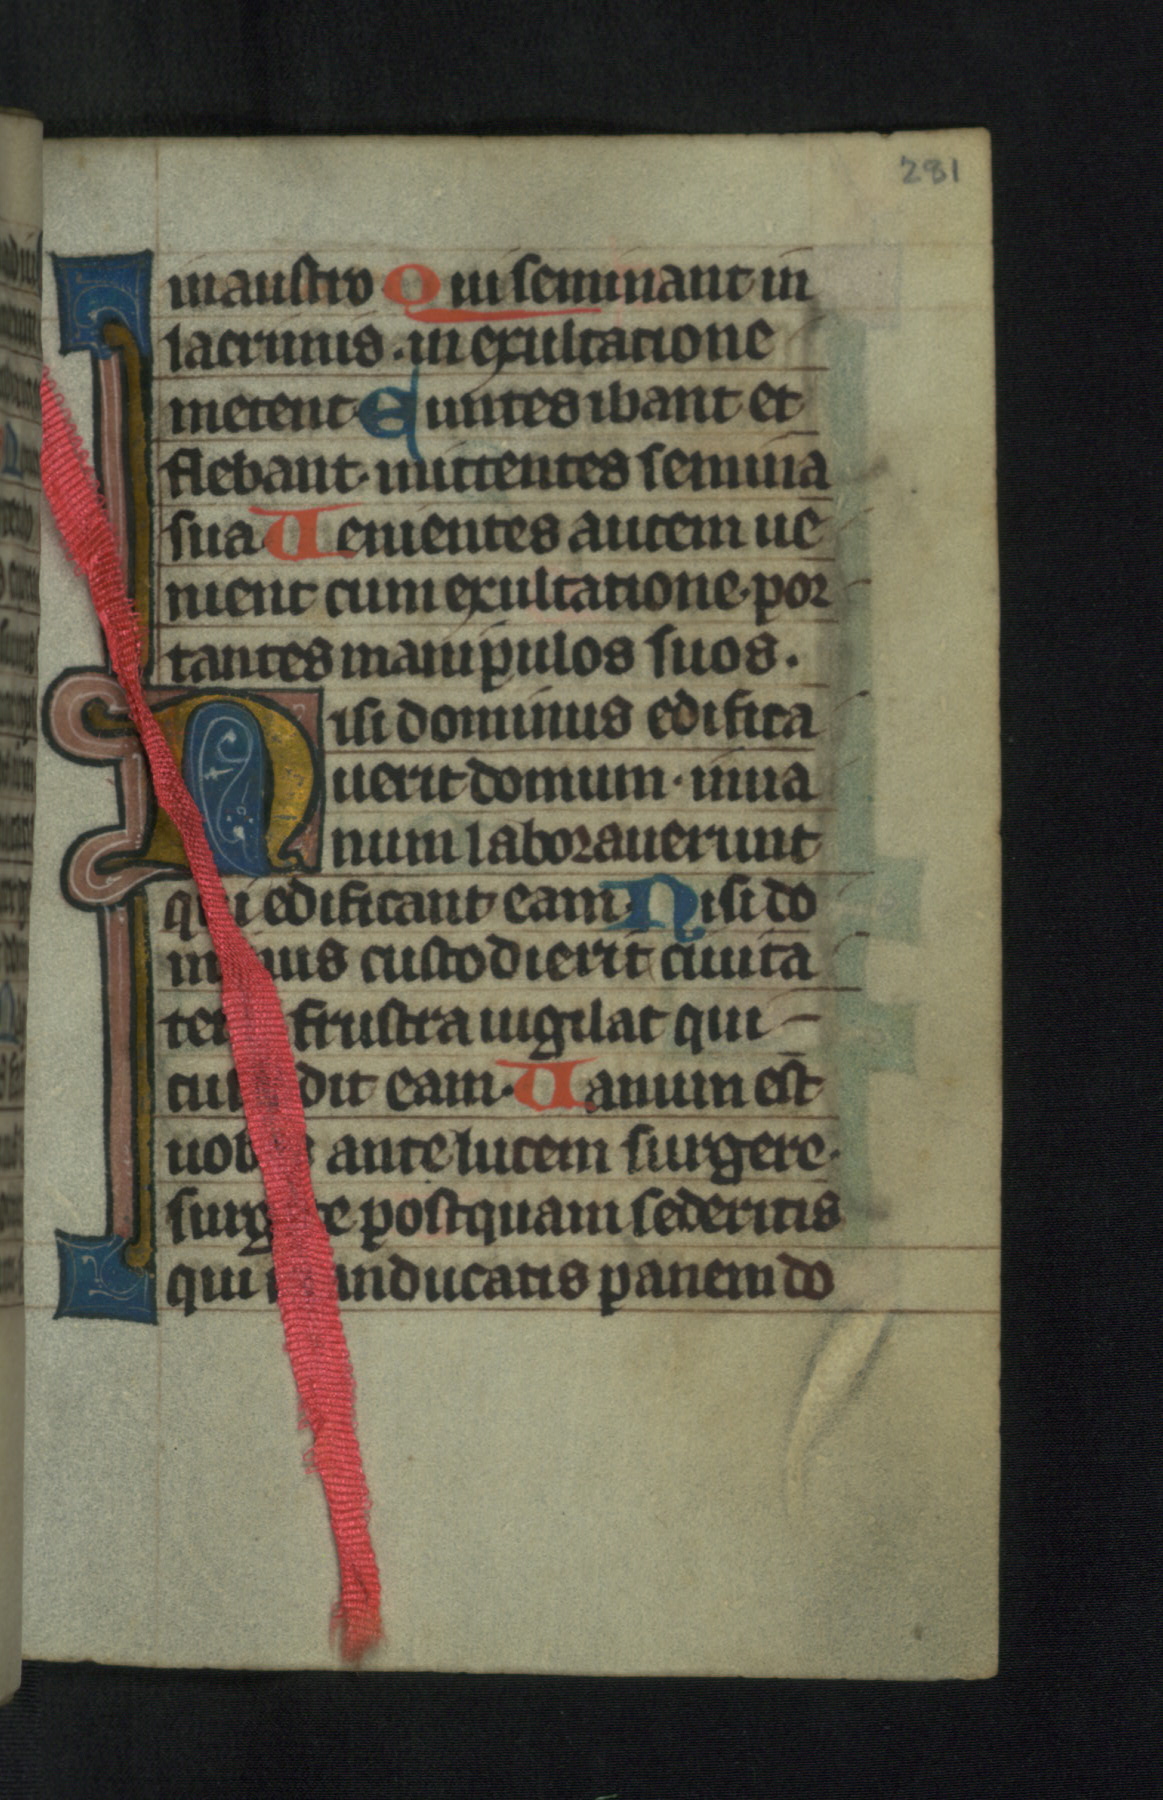 281
in austro Qui seminant in
lacrimis. in exultatione
metent Euntes ibant et
flebant. mittentes semina
sua Uenientes autem ue
nient cum exultatione. por
tantes manipulos suos.
Nisi dominus edifica
uerit domum. in ua
num laborauerunt
qui edificant eam. Nisi do
minus custodierit ciuita
tem frustra uigilat qui
custodit eam. Uanum est
uobis ante lucem surgere.
surgite postquam sederitis
qui manducatis panem do